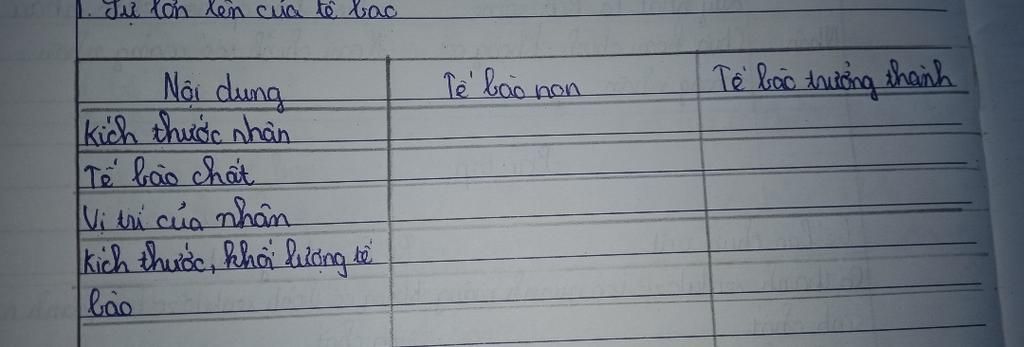 1. Sự lớn lên của tế bào
Nội dung Tế bào non Tế bào trưởng thành
Kích thước nhân
Tế bào chất
Vị trí của nhân
Kích thước, khối lượng tế
bào